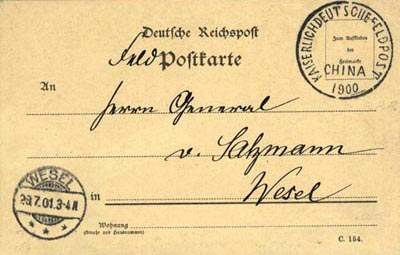 Deutsche Reichspost
Feldpostkarte
KAISERLICH DEUTSCHE FELDPOST
Zum Aufkleben
der
Freimarke
CHINA
1900
An
Herrn General
v. Salzmann
WESEL
29.7.01.3-4N
in Wesel
Wohnung
(Straße und Hausnummer)
C. 154.